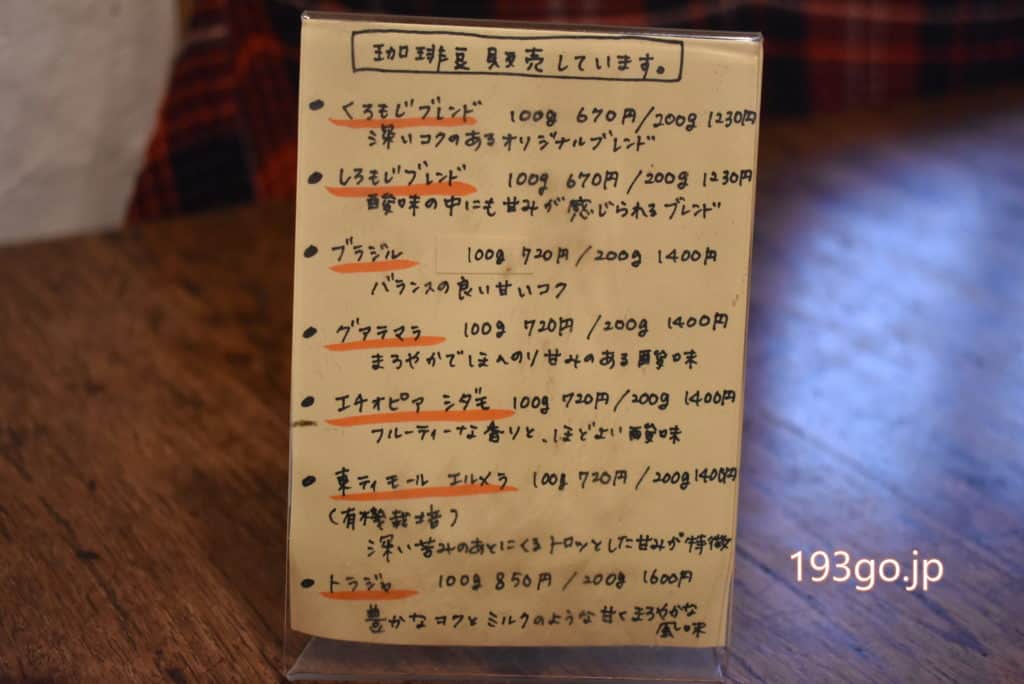 珈琲豆販売しています。
• くろもじブレンド 100g 670円/200g 1230円
深いコクのあるオリジナルブレンド
• しろもじブレンド 100g 670円/200g 1230円
酸味の中にも甘みが感じられるブレンド
• ブラジル 100g 720円/200g 1400円
バランスの良い甘いコク
• グアテマラ 100g 720円/200g 1400円
まろやかでほんのり甘みのある酸味
• エチオピア シダモ 100g 720円/200g 1400円
フルーティーな香りと、ほどよい酸味
• 東ティモール エルメラ 100g 720円/200g 1400円
(有機栽培)
深い苦みのあとにくるトロッとした甘みが特徴
• トラジャ 100g 850円/200g 1600円
豊かなコクとミルクのような甘くまろやかな
風味
193go.jp